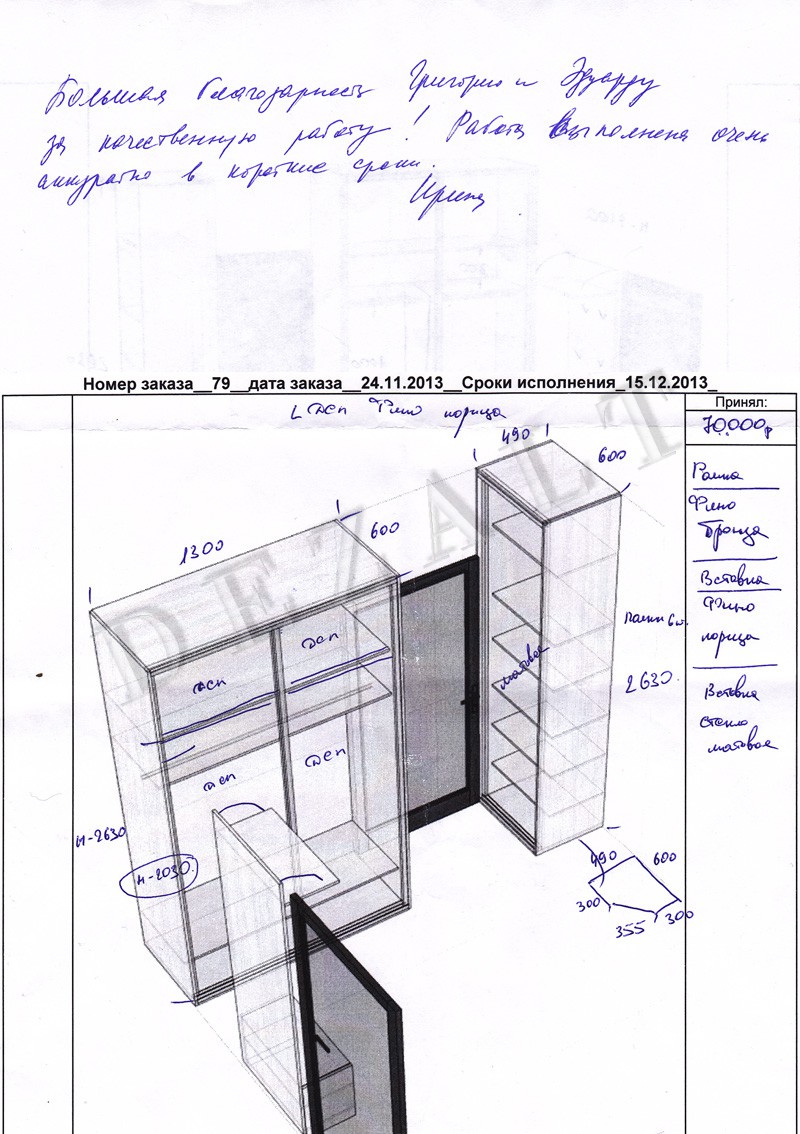 Большая благодарность Григорию и Эдуарду
за качественную работу! Работа выполнена очень
аккуратно в короткие сроки.
Ирина
Номер заказа__79__дата заказа__24.11.2013__Сроки исполнения_15.12.2013_
Принял:
70.000р
LДСП Фино корица
490
600
1300
600
Рамка
Фино
Бронза
Вставка
Фино
корица
Вставка
стекло
матовое
ДСП
ДСП
матовое
полки 6ш.
2630
ДСП
ДСП
H-2630
H-2030
490
600
300
355
300
DEZALT